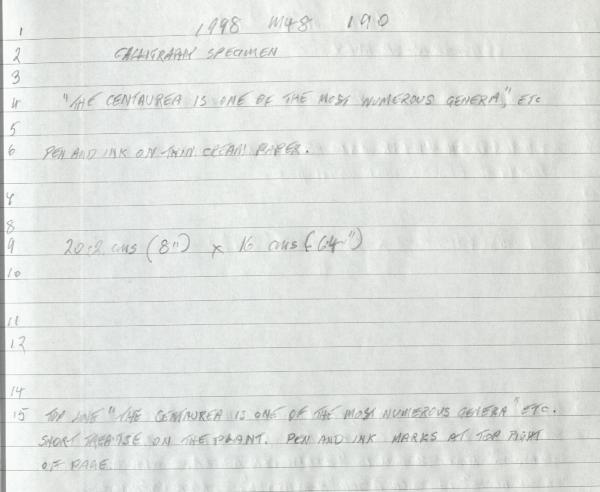 1 1998 M48 190
2 CALLIGRAPHY SPECIMEN
3
4 "THE CENTAUREA IS ONE OF THE MOST NUMEROUS GENERA," ETC
5
6 PEN AND INK ON THIN CREAM PAPER.
8
9 20.2 cms (8") x 16 cms (6.4")
10
11
12
14
15 TOP LINE "THE CENTAUREA IS ONE OF THE MOST NUMEROUS GENERA" ETC.
SHORT TREATISE ON THE PLANT. PEN AND INK MARKS AT TOP RIGHT
OF PAGE.